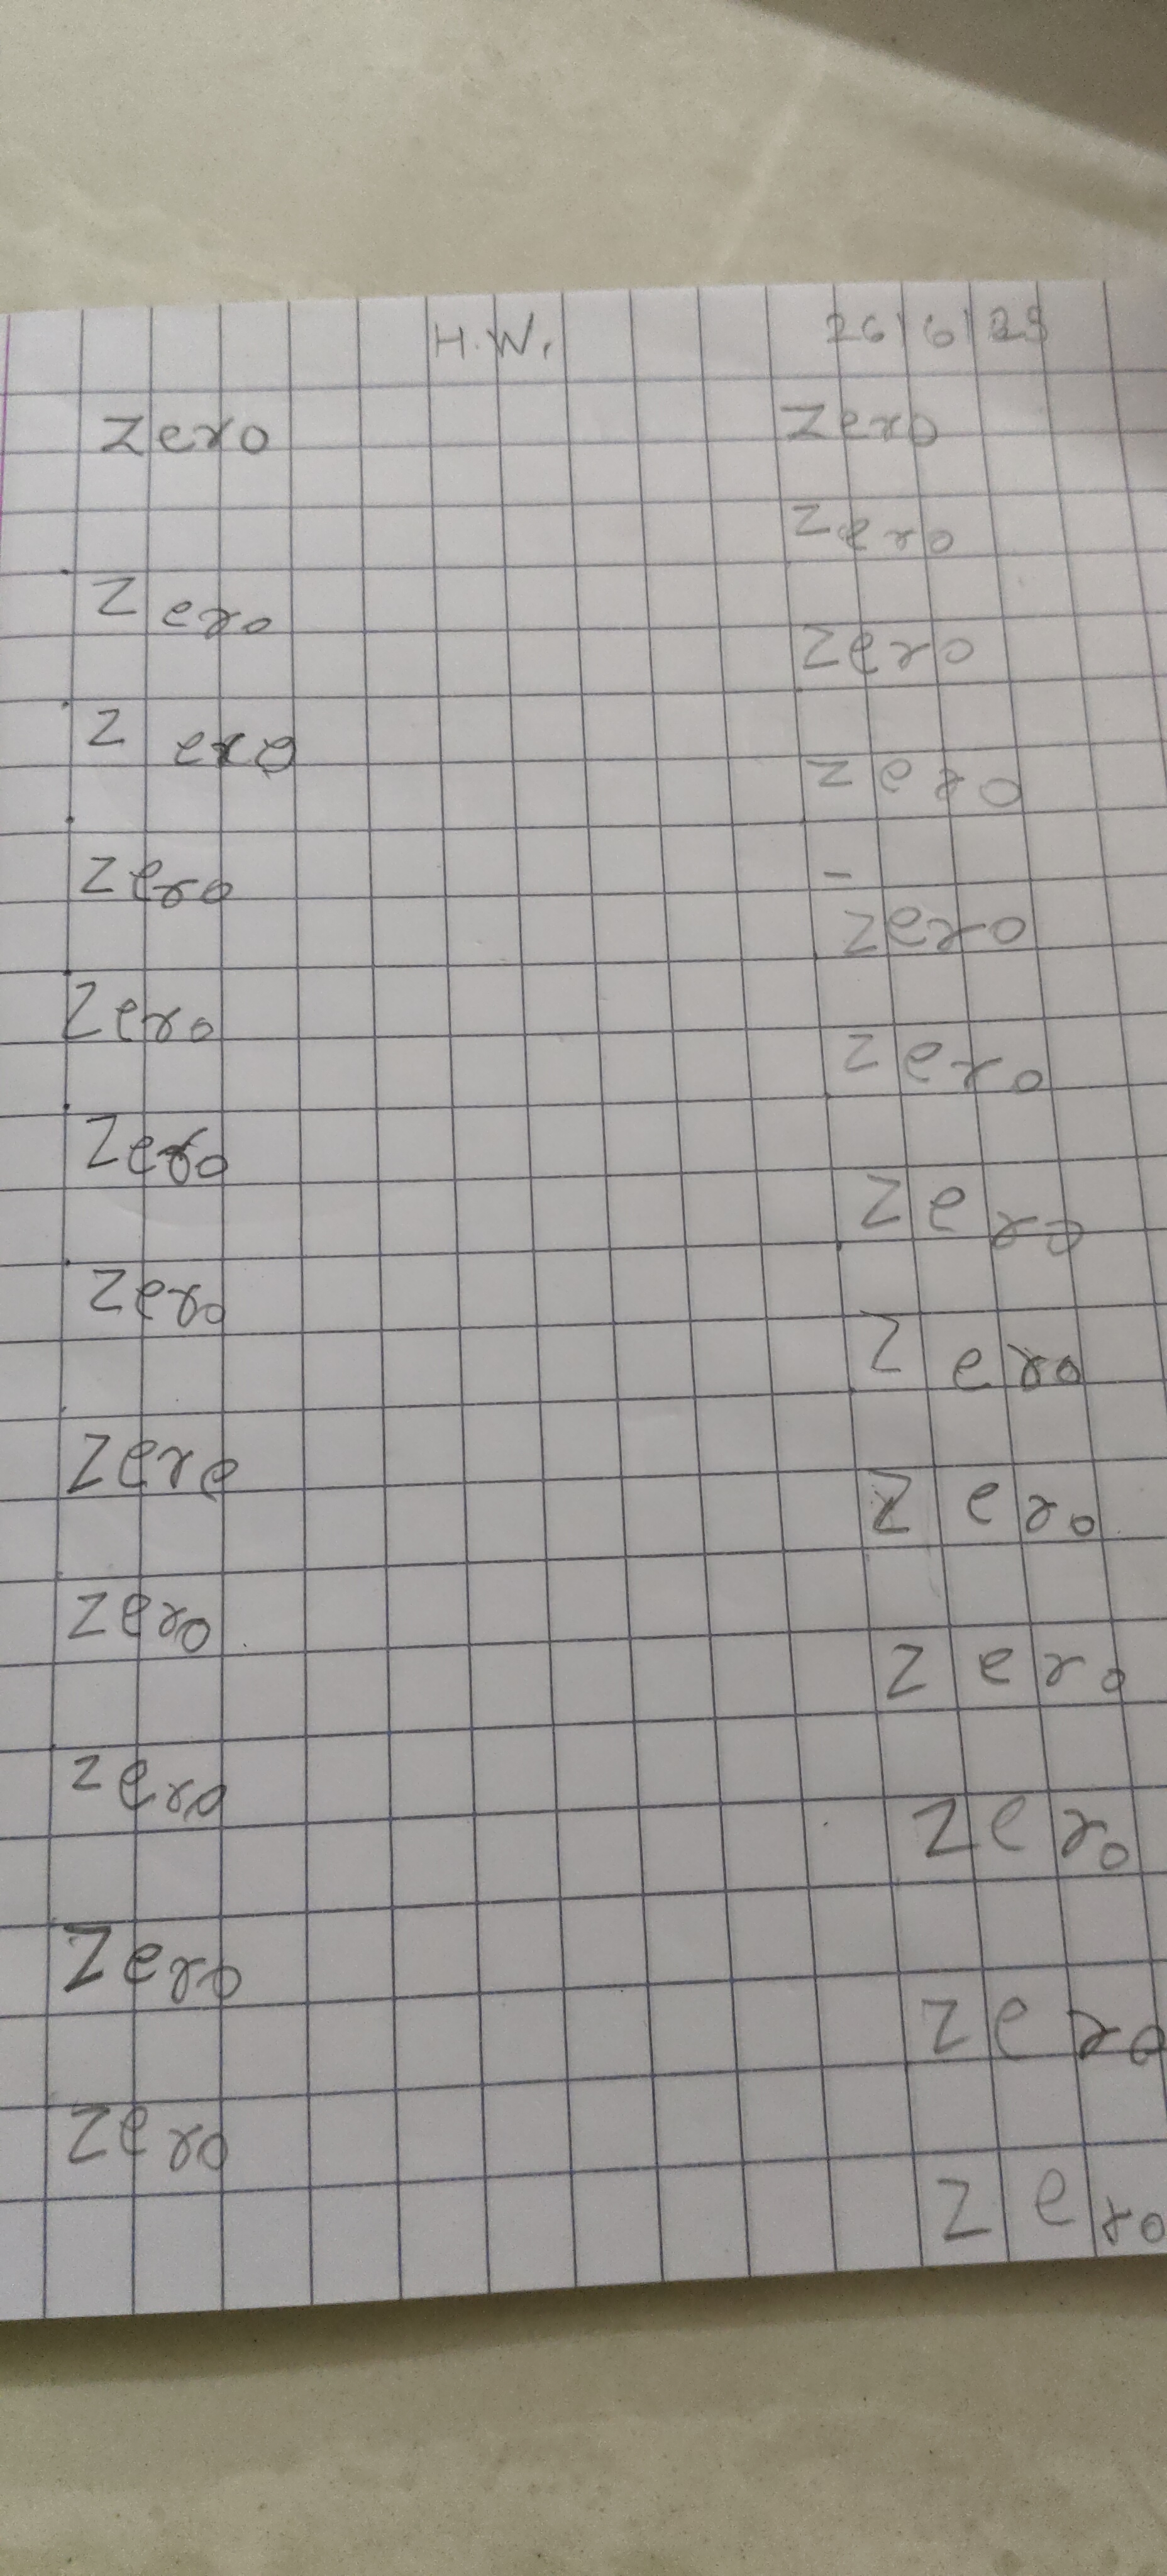 H.W. 26/6/25
zero zero
zero
zero
zero
zero
zero
zero
zero
zero
zero
zero
zero
zero
zero
zere
zero
zero
zero
zero
zero
zero
zero
zero
zero
zero